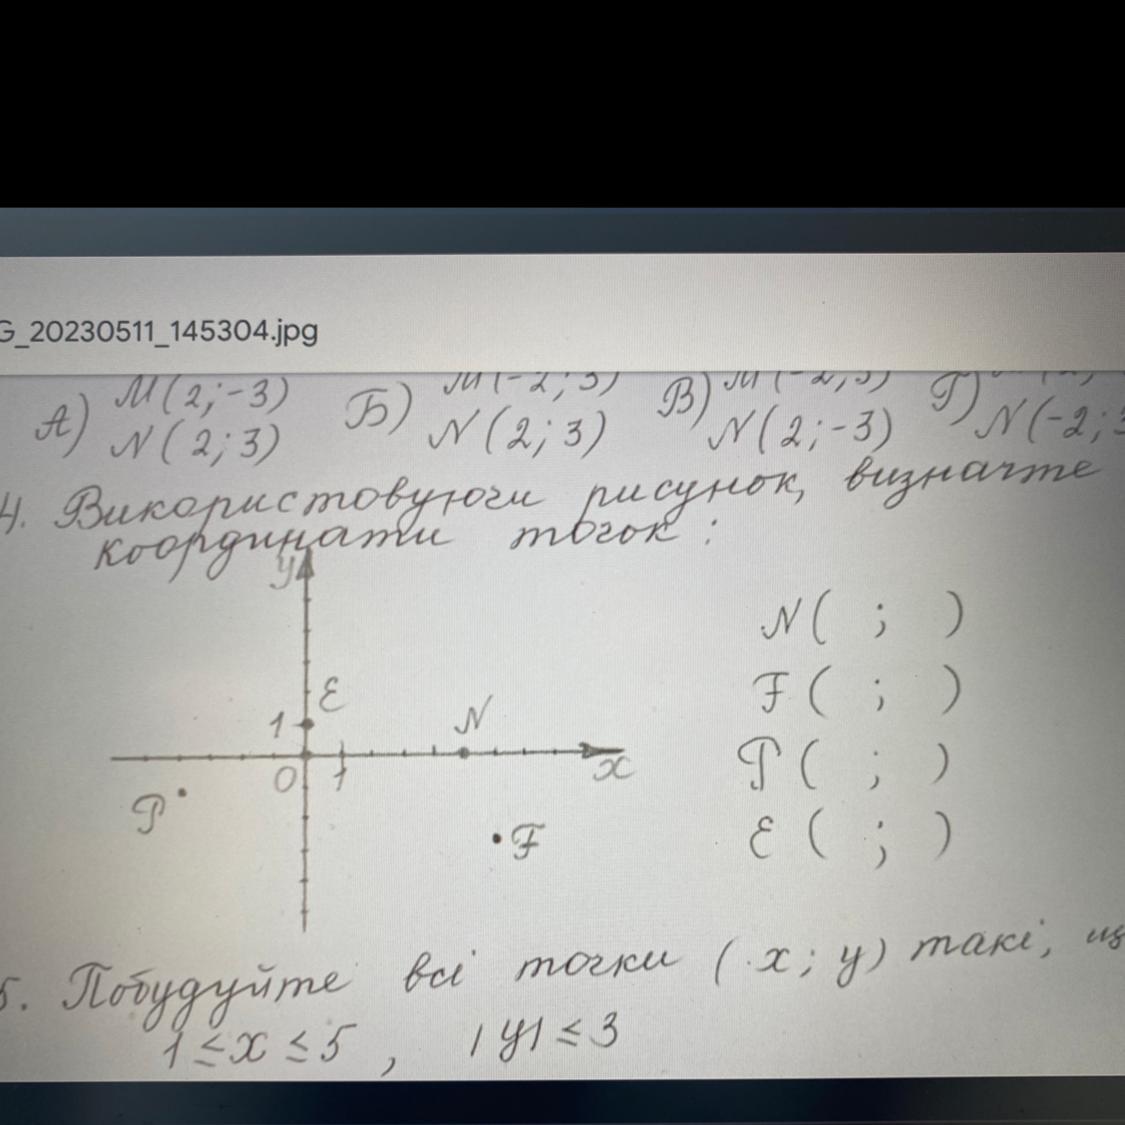 G_20230511_145304.jpg
А) M(2;-3) Б) M(-2;3) В) M(-2;3) Г)
N(2;3) N(2;3) N(2;-3) N(-2;3
4. Використовуючи рисунок, визначте
координати точок:
y
E
1
N
0 1 x
P
F
N( ; )
F( ; )
P( ; )
E( ; )
5. Побудуйте всі точки (x; y) такі, що
1 ≤ x ≤ 5 , |y| ≤ 3